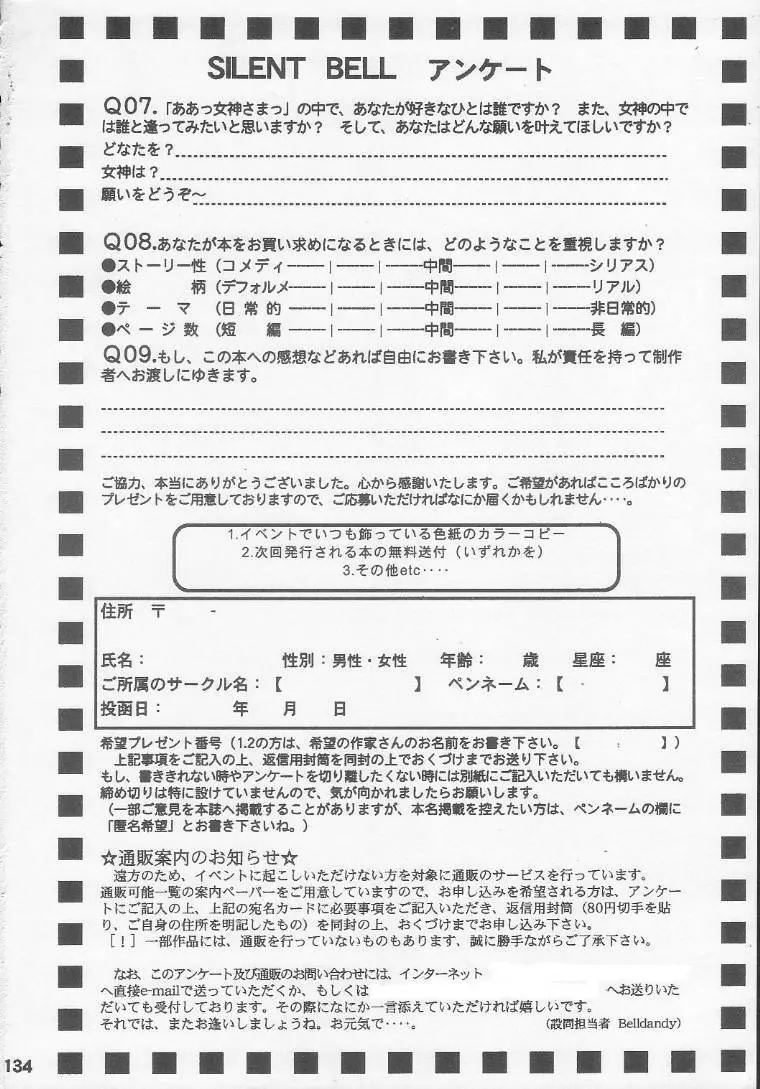 SILENT BELL アンケート
Q07.「ああっ女神さまっ」の中で、あなたが好きなひとは誰ですか？ また、女神の中で
は誰と逢ってみたいと思いますか？ そして、あなたはどんな願いを叶えてほしいですか？
どなたを？
女神は？
願いをどうぞ～
Q08.あなたが本をお買い求めになるときには、どのようなことを重視しますか？
●ストーリー性（コメディ――｜――｜――中間――｜――｜――シリアス）
●絵 柄（デフォルメ――｜――｜――中間――｜――｜――リアル）
●テ ー マ（日 常 的 ――｜――｜――中間――｜――｜――非日常的）
●ペ ー ジ 数（短 編 ――｜――｜――中間――｜――｜――長 編）
Q09.もし、この本への感想などあれば自由にお書き下さい。私が責任を持って制作
者へお渡しにゆきます。
ご協力、本当にありがとうございました。心から感謝いたします。ご希望があればこころばかりの
プレゼントをご用意しておりますので、ご応募いただければなにか届くかもしれません‥‥。
1.イベントでいつも飾っている色紙のカラーコピー
2.次回発行される本の無料送付（いずれかを）
3.その他etc‥‥
住所 〒 -
氏名： 性別：男性・女性 年齢： 歳 星座： 座
ご所属のサークル名：【 】 ペンネーム：【 】
投函日： 年 月 日
希望プレゼント番号（1.2の方は、希望の作家さんのお名前をお書き下さい。【 : 】）
上記事項をご記入の上、返信用封筒を同封の上でおくづけまでお送り下さい。
もし、書ききれない時やアンケートを切り離したくない時には別紙にご記入いただいても構いません。
締め切りは特に設けていませんので、気が向かれましたらお願いします。
（一部ご意見を本誌へ掲載することがありますが、本名掲載を控えたい方は、ペンネームの欄に
「匿名希望」とお書き下さいね。）
☆通販案内のお知らせ☆
遠方のため、イベントに起こしいただけない方を対象に通販のサービスを行っています。
通販可能一覧の案内ペーパーをご用意していますので、お申し込みを希望される方は、アンケー
トにご記入の上、上記の宛名カードに必要事項をご記入いただき、返信用封筒（80円切手を貼
り、ご自身の住所を明記したもの）を同封の上、おくづけまでお申し込み下さい。
［！］一部作品には、通販を行っていないものもあります、誠に勝手ながらご了承下さい。
なお、このアンケート及び通販のお問い合わせには、インターネット
へ直接e-mailで送っていただくか、もしくは へお送りいた
だいても受付しております。その際になにか一言添えていただければ嬉しいです。
それでは、またお逢いしましょうね。お元気で‥‥。 （設問担当者 Belldandy）
134